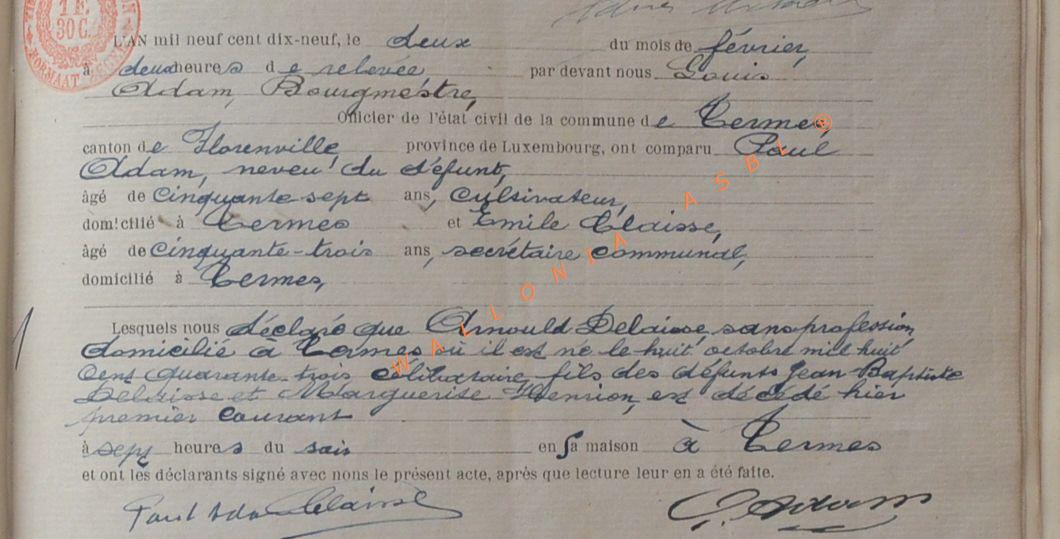 1 F.
30 C.
L'AN mil neuf cent dix-neuf, le deux du mois de février,
à deux heures de relevée, par devant nous Louis
Adam, Bourgmestre,
Officier de l'état civil de la commune de Termes,
canton de Florenville, province de Luxembourg, ont comparu Paul
Adam, neveu du défunt,
âgé de cinquante sept ans, cultivateur,
domicilié à Termes et Emile Claisse,
âgé de cinquante-trois ans, secrétaire communal,
domicilié à Termes,
Lesquels nous déclaré que Arnould Delaisse, sans profession,
domicilié à Termes où il est né le huit octobre mil huit
cent quarante-trois célibataire, fils des défunts Jean Baptiste
Delaisse et Marguerite Henrion, est décédé hier
premier courant
à sept heures du soir en sa maison à Termes
et ont les déclarants signé avec nous le présent acte, après que lecture leur en a été faite.
Paul Adam Claisse L. Adam
WALLONIA ASBL®